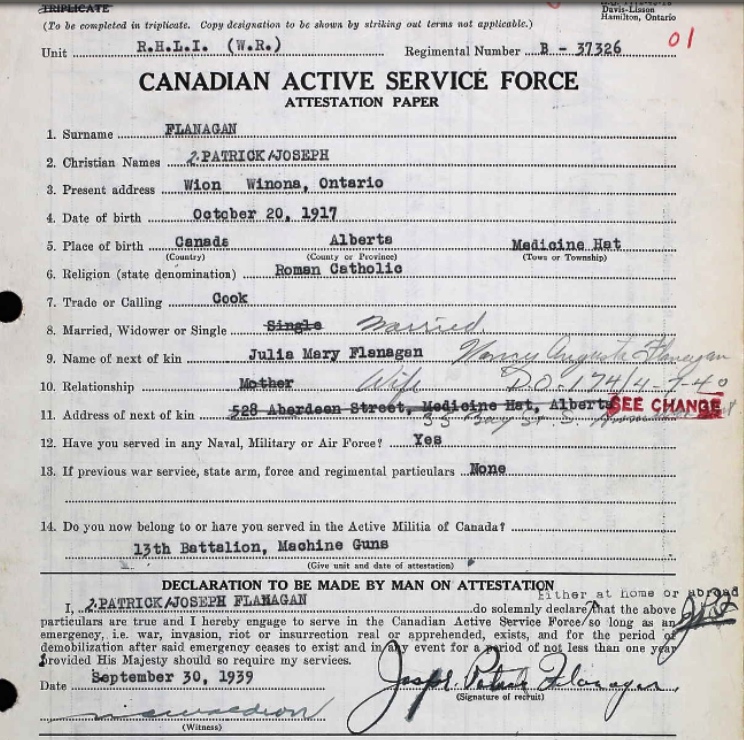 TRIPLICATE
Davis-Lisson
Hamilton, Ontario
(To be completed in triplicate. Copy designation to be shown by striking out terms not applicable.)
01
Unit R.H.L.I. (W.R.) Regimental Number B - 37326
CANADIAN ACTIVE SERVICE FORCE
ATTESTATION PAPER
1. Surname FLANAGAN
2. Christian Names 2.PATRICK/JOSEPH
3. Present address Wion Winona, Ontario
4. Date of birth October 20, 1917
5. Place of birth Canada Alberta Medicine Hat
(Country) (County or Province) (Town or Township)
6. Religion (state denomination) Roman Catholic
7. Trade or Calling Cook
8. Married, Widower or Single Single Married.
9. Name of next of kin Julia Mary Flanagan Nancy Augusta Flanagan
10. Relationship Mother Wife D.O. 174/4-7-40
11. Address of next of kin 528 Aberdeen Street, Medicine Hat, Alberta SEE CHANGE
Bay St. S.
12. Have you served in any Naval, Military or Air Force? Yes
13. If previous war service, state arm, force and regimental particulars None
14. Do you now belong to or have you served in the Active Militia of Canada?
13th Battalion, Machine Guns
(Give unit and date of attestation)
DECLARATION TO BE MADE BY MAN ON ATTESTATION
Either at home or abroad
I, 2.PATRICK/JOSEPH FLANAGAN do solemnly declare that the above
particulars are true and I hereby engage to serve in the Canadian Active Service Force so long as an
emergency, i.e. war, invasion, riot or insurrection real or apprehended, exists, and for the period of
demobilization after said emergency ceases to exist and in any event for a period of not less than one year
provided His Majesty should so require my services.
Date September 30, 1939 Joseph Patrick Flanagan
(Signature of recruit)
(Witness)